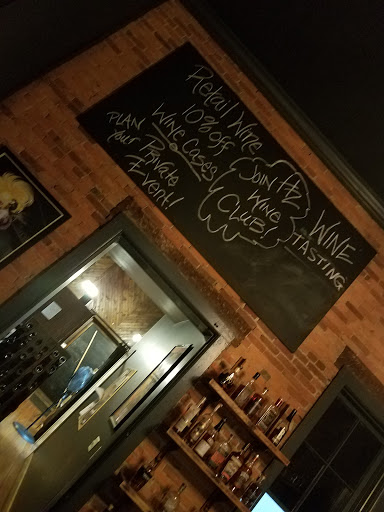 Retail Wine
10% off
Wine Cases
PLAN
Your
Private
Event!
JOIN
Wine
CLUB!
WINE
TASTING